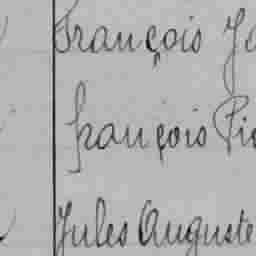 François
françois
Jules Auguste